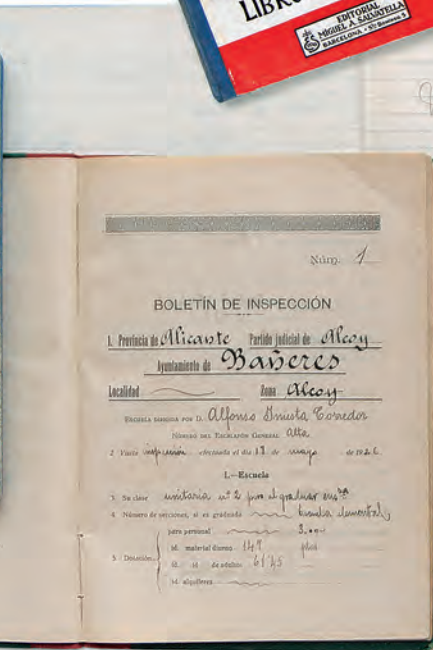 LIBRO
EDITORIAL
MIGUEL A. SALVATELLA
BARCELONA
Núm. 1
BOLETÍN DE INSPECCIÓN
1. Provincia de Alicante Partido judicial de Alcoy
Ayuntamiento de Bañeres
Localidad Zona Alcoy
ESCUELA DIRIGIDA POR D. Alfonso Iniesta Corredor
NÚMERO DEL ESCALAFÓN GENERAL Alta
2. Visita inspección efectuada el día 18 de mayo de 1926.
I.—Escuela
3. Su clase unitaria nº 2 pero al graduar
4. Número de secciones, si es graduada
5. Dotación. para personal 3.000
id. material diurno 147 ptas
id. id. de adultos 61'25
id. alquileres